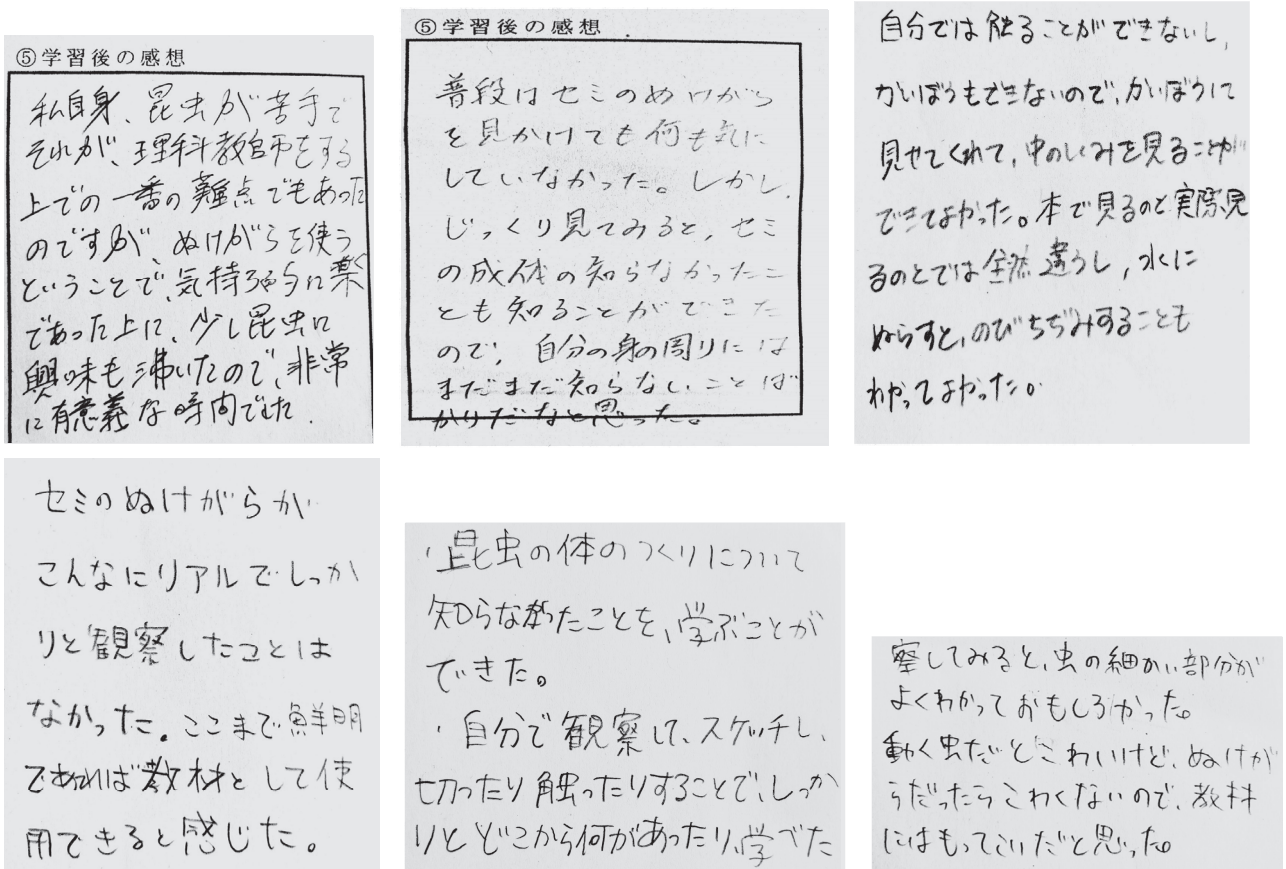 ⑤学習後の感想
私自身、昆虫が苦手で
それが、理科教師をする
上での一番の難点でもあった
のですが、ぬけがらを使う
ということで、気持ち的に楽
であった上に、少し昆虫に
興味も沸いたので、非常
に有意義な時間でした
⑤学習後の感想
普段はセミのぬけがら
を見かけても何も気に
していなかった。しかし、
じっくり見てみると、セミ
の成体の知らなかったこ
とも知ることができた
ので、自分の身の周りには
まだまだ知らないことば
かりだなと思った。
自分では触ることができないし、
かいぼうもできないので、かいぼうして
見せてくれて、中のしくみを見ることが
できてよかった。本で見るのと実際見
るのとでは全然違うし、水に
ぬらすと、のびちぢみすることも
わかってよかった。
セミのぬけがらが
こんなにリアルでしっか
りと観察したことは
なかった。ここまで鮮明
であれば教材として使
用できると感じた。
・昆虫の体のつくりについて
知らなかったことを、学ぶことが
できた。
・自分で観察して、スケッチし、
切ったり触ったりすることで、しっか
りとどこから何があったり、学べた
察してみると、虫の細かい部分が
よくわかっておもしろかった。
動く虫だとこわいけど、ぬけが
らだったらこわくないので、教材
にはもってこいだと思った。